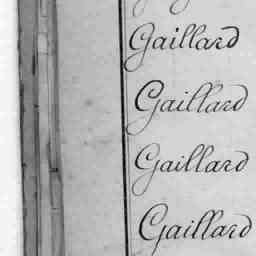 Gaillard
Gaillard
Gaillard
Gaillard